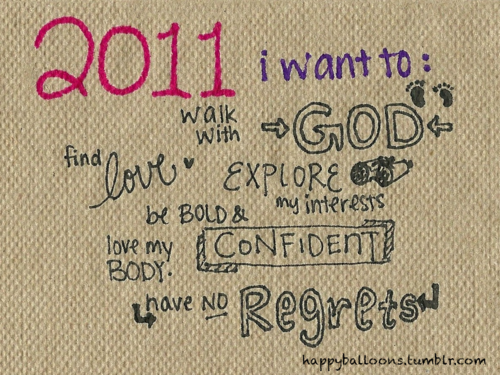 2011 i want to:
walk
with GOD
find love EXPLORE
my interests
be BOLD &
CONFIDENT
love my
BODY.
have NO Regrets
happyballoons.tumblr.com